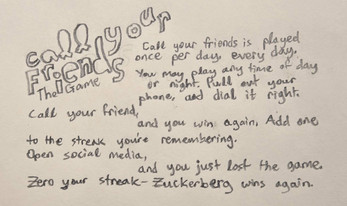 Call Your
Friends
The Game
Call your friends is played
once per day, every day.
You may play any time of day
or night. Pull out your
phone, and dial it right.
Call your friend,
and you win again. Add one
to the streak you're remembering.
Open social media,
and you just lost the game.
Zero your streak- Zuckerberg wins again.